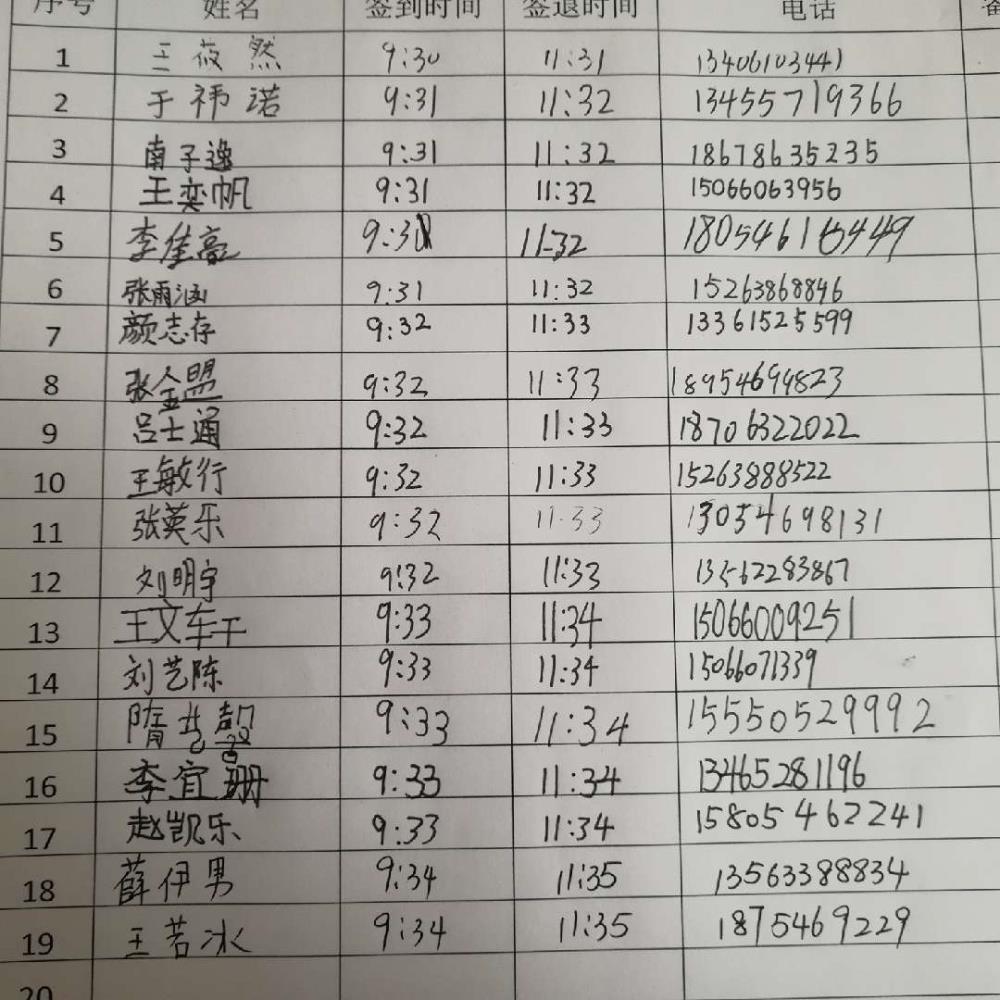 序号 姓名 签到时间 签退时间 电话 备
1 王莜然 9:30 11:31 13406103441
2 于祎诺 9:31 11:32 13455719366
3 南子逸 9:31 11:32 18678635235
4 王奕帆 9:31 11:32 15066063956
5 李佳亮 11:32
6 张雨涵 9:31 11:32 15263868846
7 颜志存 9:32 11:33 13361525599
8 张金盟 9:32 11:33 18954694823
9 吕士通 9:32 11:33 18706322022
10 王敏行 9:32 11:33 15263888522
11 张英乐 9:32 11:33 13054698131
12 刘明宇 9:32 11:33 13562283867
13 王文轩 9:33 11:34 15066009251
14 刘艺陈 9:33 11:34 15066071339
15 9:33 11:34 15550529992
16 李宜珊 9:33 11:34 13465281196
17 赵凯乐 9:33 11:34 15805462241
18 薛伊男 9:34 11:35 13563388834
19 王若冰 9:34 11:35 1875469229
20